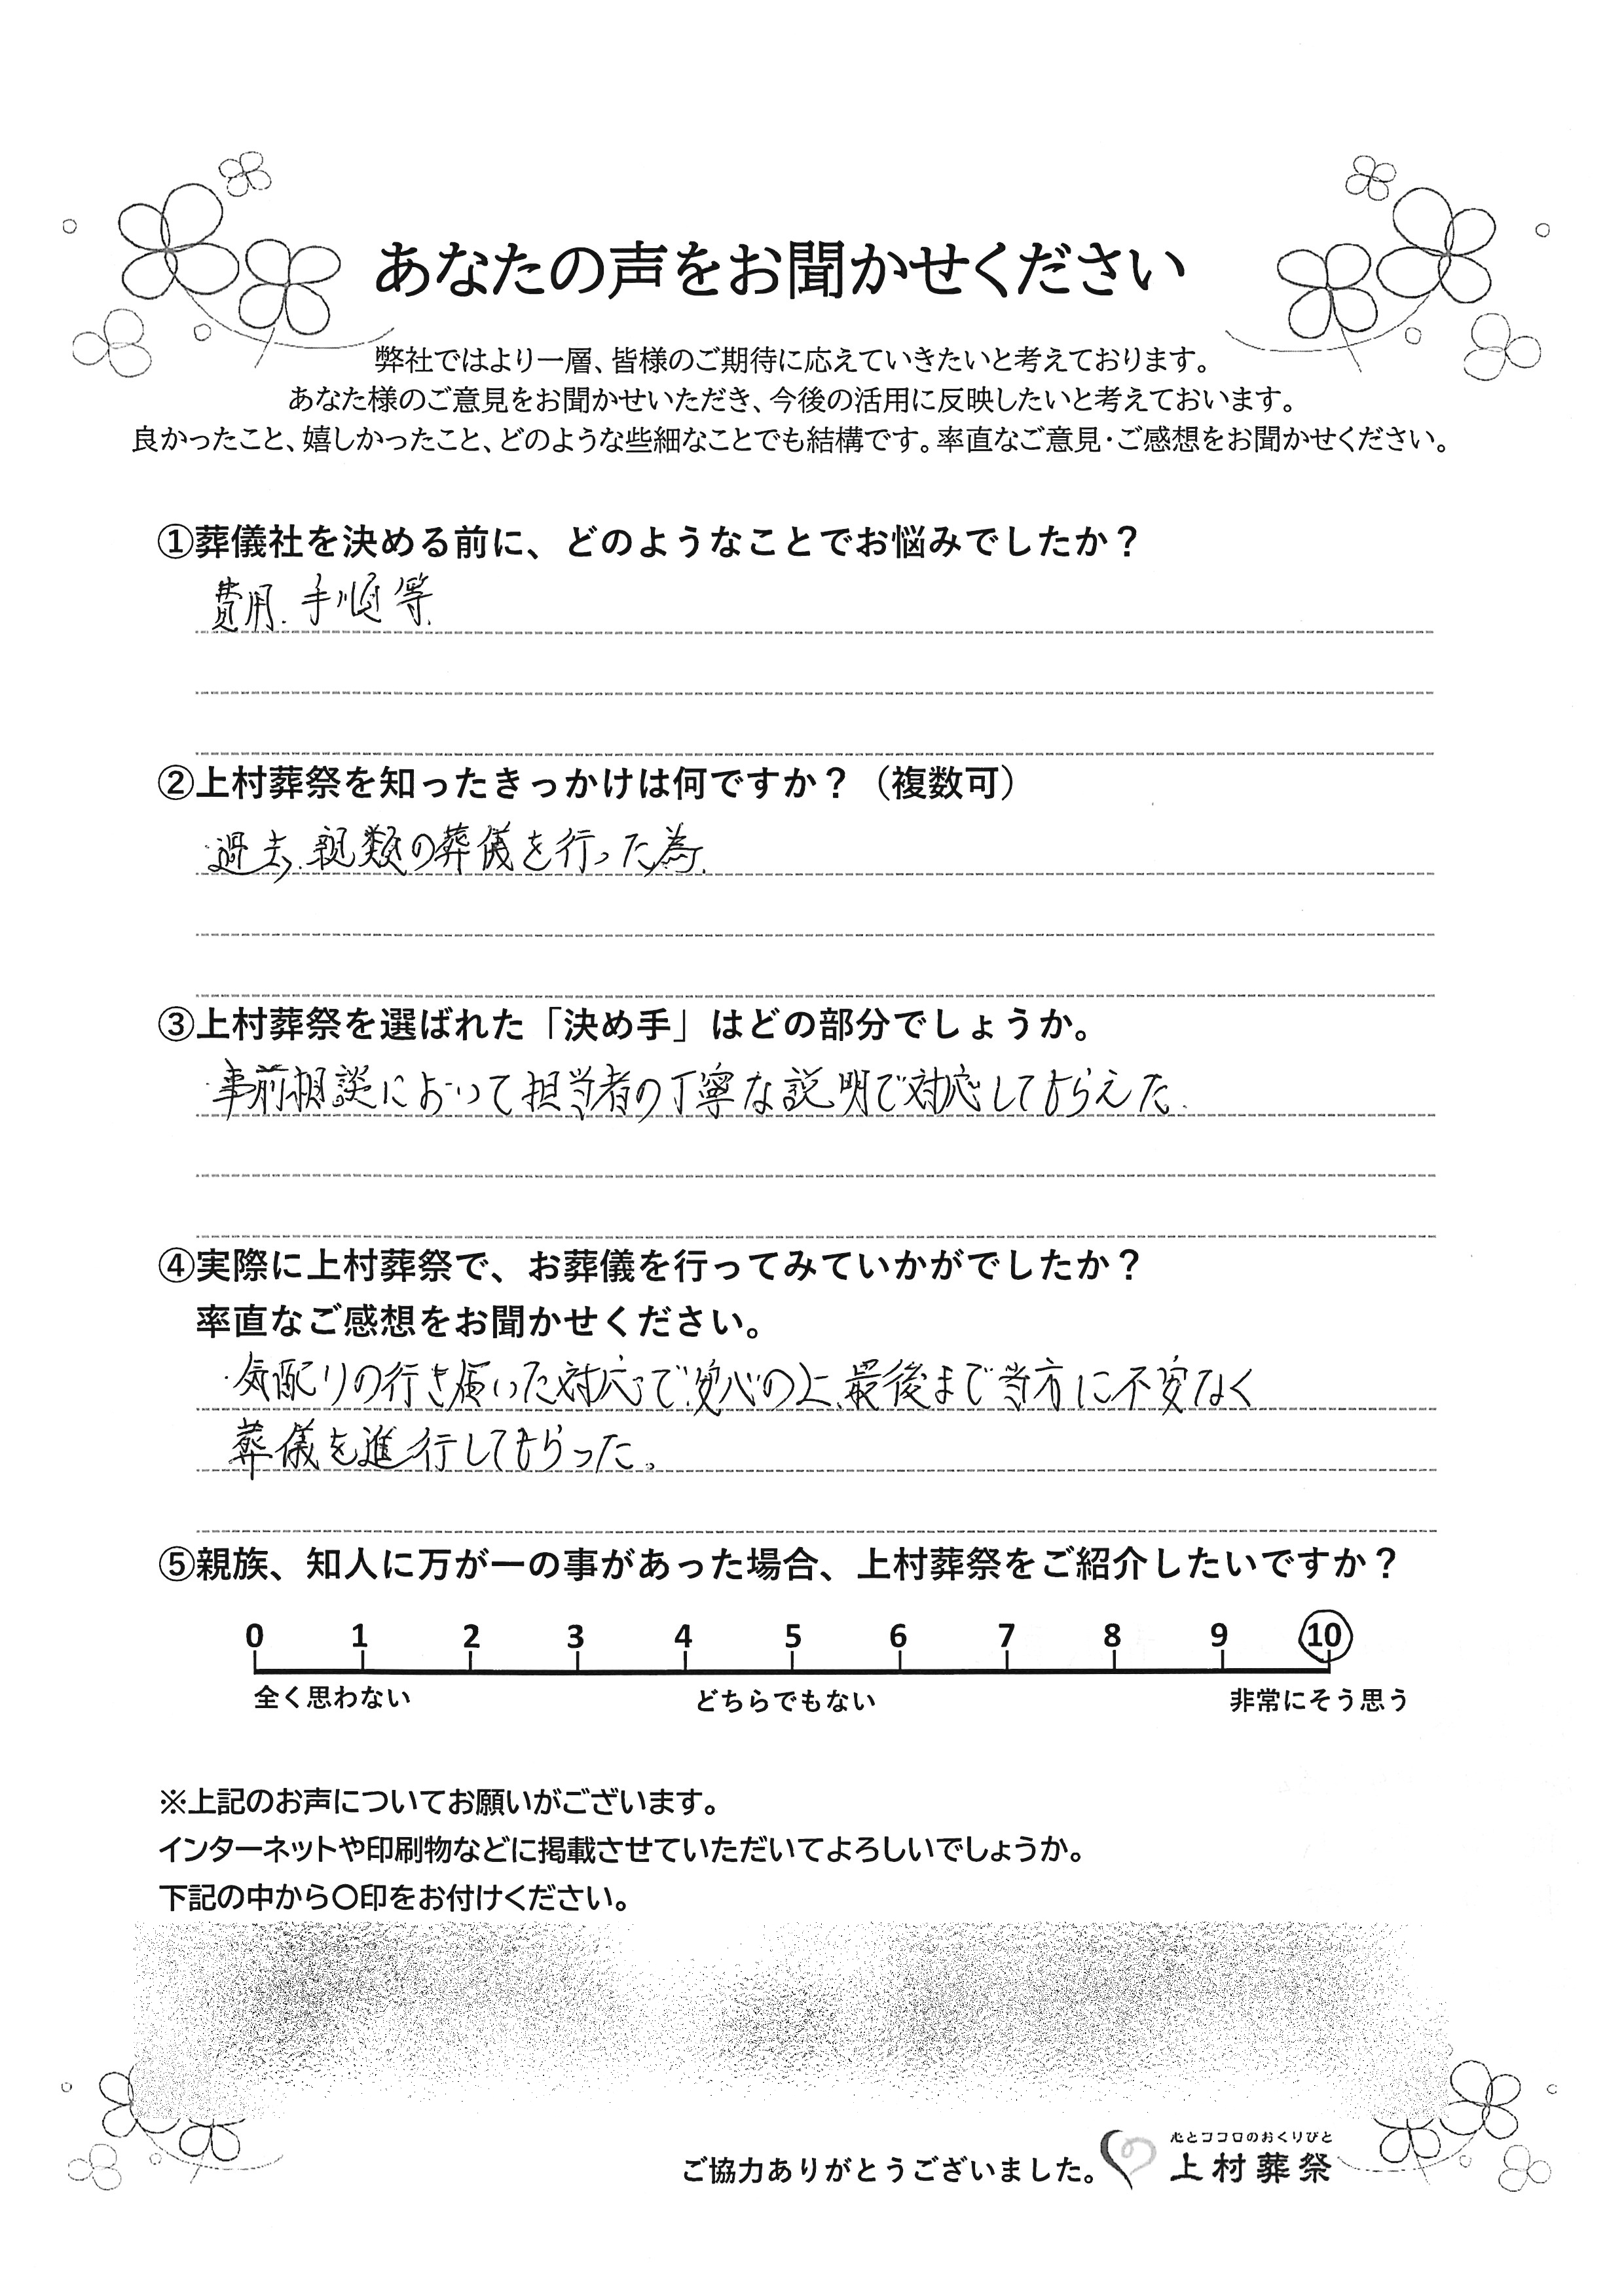 あなたの声をお聞かせください
弊社ではより一層、皆様のご期待に応えていきたいと考えております。
あなた様のご意見をお聞かせいただき、今後の活用に反映したいと考えておいます。
良かったこと、嬉しかったこと、どのような些細なことでも結構です。率直なご意見・ご感想をお聞かせください。
①葬儀社を決める前に、どのようなことでお悩みでしたか？
費用、手順等
②上村葬祭を知ったきっかけは何ですか？（複数可）
・過去、親類の葬儀を行った為、
③上村葬祭を選ばれた「決め手」はどの部分でしょうか。
・事前相談において担当者の丁寧な説明で対応してもらえた。
④実際に上村葬祭で、お葬儀を行ってみていかがでしたか？
率直なご感想をお聞かせください。
・気配りの行き届いた対応で安心の上、最後まで当方に不安なく
葬儀を進行してもらった。
⑤親族、知人に万が一の事があった場合、上村葬祭をご紹介したいですか？
0 1 2 3 4 5 6 7 8 9 10
全く思わない どちらでもない 非常にそう思う
※上記のお声についてお願いがございます。
インターネットや印刷物などに掲載させていただいてよろしいでしょうか。
下記の中から〇印をお付けください。
心とココロのおくりびと
ご協力ありがとうございました。 上村葬祭